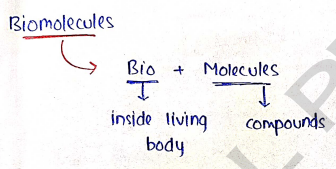 Biomolecules
Bio + Molecules
inside living compounds
body